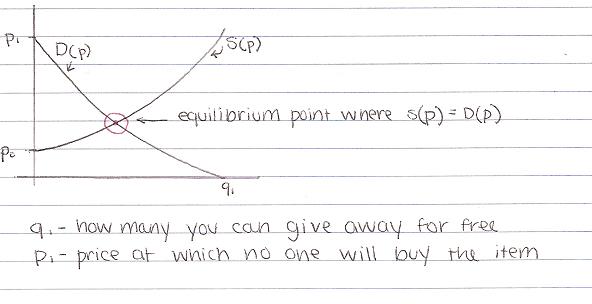 p₁
D(p)
S(p)
equilibrium point where s(p) = D(p)
p₀
q₁
q₁ - how many you can give away for free
p₁ - price at which no one will buy the item